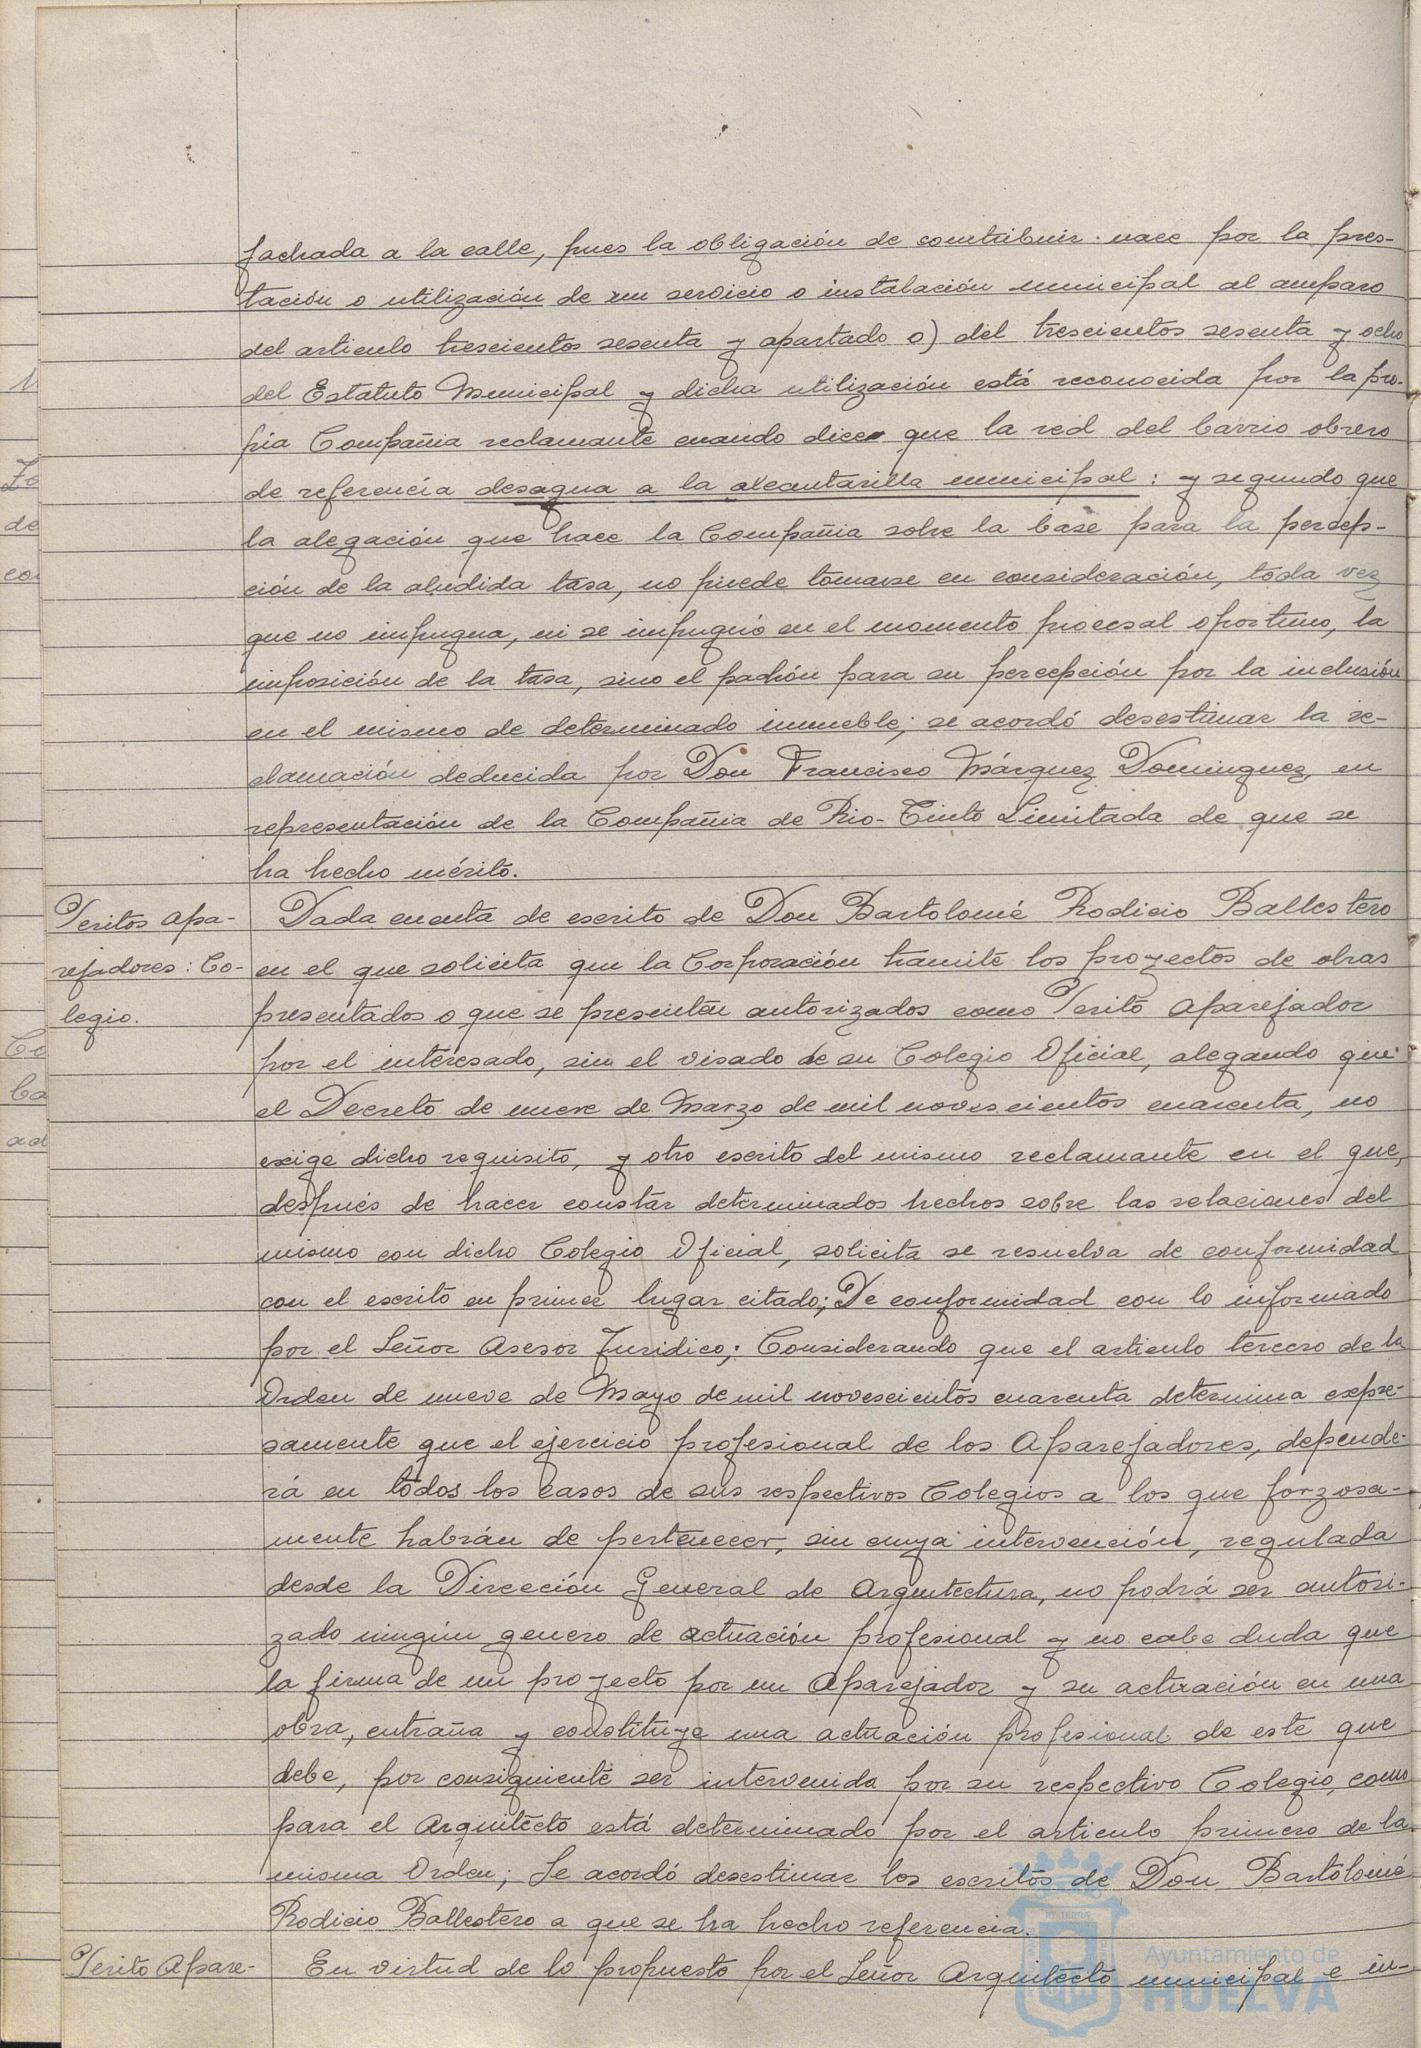 fachada a la calle, pues la obligación de contribuir nace por la pres-
tación o utilización de un servicio o instalación municipal al amparo
del articulo trescientos sesenta y apartado o) del trescientos sesenta y ocho
del Estatuto Municipal y dicha utilización está reconocida por la pro-
pia Compañia reclamante cuando dice que la red del barrio obrero
de referencia desagua a la alcantarilla municipal: y segundo que
la alegación que hace la Compañia sobre la base para la percep-
ción de la aludida tasa, no puede tomarse en consideración, toda vez
que no impugna, ni se impugnó en el momento procesal oportuno, la
imposición de la tasa, sino el padrón para su percepción por la inclusión
en el mismo de determinado inmueble; se acordó desestimar la re-
clamación deducida por Don Francisco Márquez Dominguez en
representación de la Compañia de Rio-Tinto Limitada de que se
ha hecho mérito.
Peritos Apa-
rejadores: Co-
legio.
Dada cuenta de escrito de Don Bartolomé Rodicio Ballestero
en el que solicita que la Corporación tramite los proyectos de obras
presentados o que se presenten autorizados como Perito Aparejador
por el interesado, sin el visado de su Colegio Oficial, alegando que
el Decreto de nueve de Marzo de mil novescientos cuarenta, no
exige dicho requisito, y otro escrito del mismo reclamante en el que,
después de hacer constar determinados hechos sobre las relaciones del
mismo con dicho Colegio Oficial, solicita se resuelva de conformidad
con el escrito en primer lugar citado; De conformidad con lo informado
por el Señor Asesor Juridico; Considerando que el articulo tercero de la
Orden de nueve de Mayo de mil novescientos cuarenta determina expre-
samente que el ejercicio profesional de los Aparejadores, depende-
rá en todos los casos de sus respectivos Colegios a los que forzosa-
mente habrán de pertenecer, sin cuya intervención, regulada
desde la Dirección General de Arquitectura, no podrá ser autori-
zado ningún genero de actuación profesional y no cabe duda que
la firma de un proyecto por un Aparejador y su actuación en una
obra, entraña y constituye una actuación profesional de este que
debe, por consiguiente ser intervenida por su respectivo Colegio, como
para el Arquitecto está determinado por el articulo primero de la
misma Orden; Se acordó desestimar los escritos de Don Bartolomé
Rodicio Ballestero a que se ha hecho referencia.
Perito Apare-
En virtud de lo propuesto por el Señor Arquitecto municipal e in-
Ayuntamiento de
HUELVA
de
Co
ad